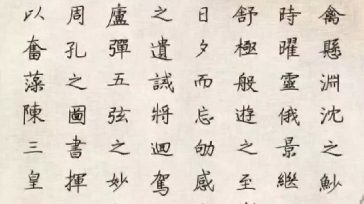 禽懸淵沈之魦
時曜靈俄景繼
舒極般遊之至
日夕而忘劬感
之遺誡將迴駕
廬彈五弦之妙
周孔之圖書揮
以奮藻陳三皇